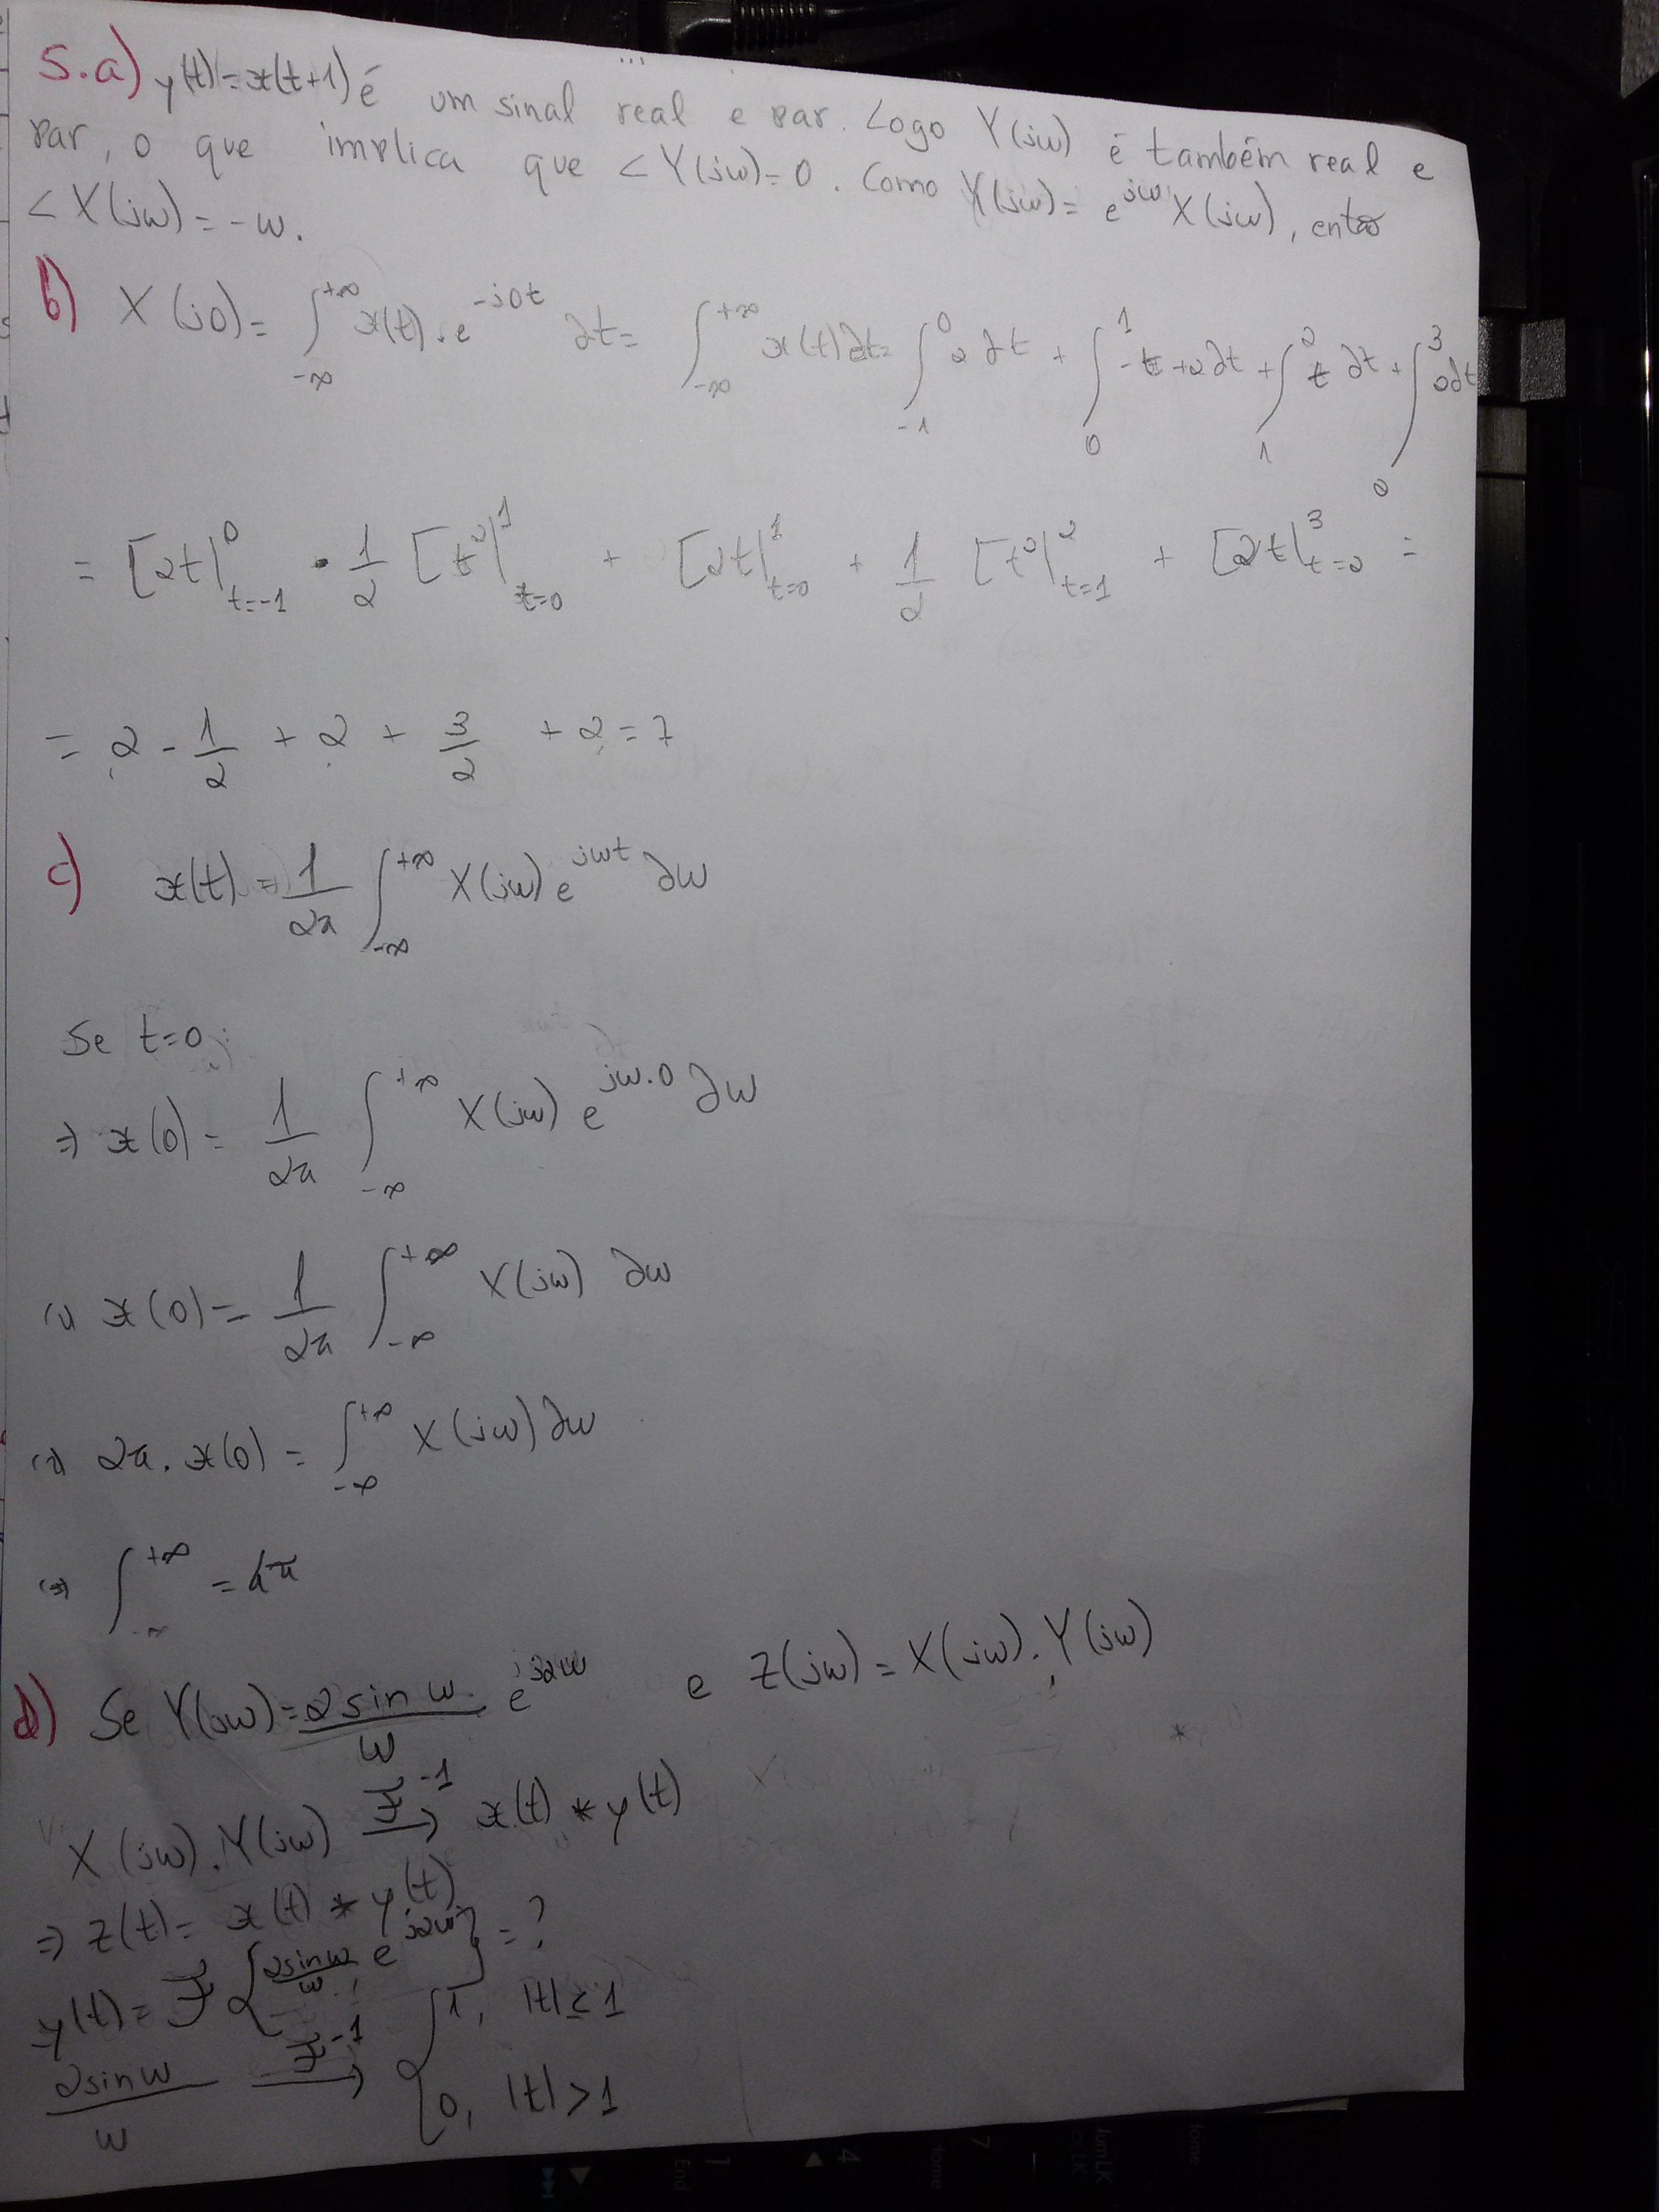 5.a) y(t)=x(t+1) é um sinal real e par. Logo Y(jω) é também real e
par, o que implica que <Y(jω)=0. Como Y(jω)= e^{jω}X(jω), então
<X(jω)=-ω.
b) X(j0)= ∫_{-∞}^{+∞} x(t).e^{-j0t} ∂t= ∫_{-∞}^{+∞} x(t)∂t= ∫_{-1}^{0} 2 ∂t + ∫_{0}^{1} -t+2∂t + ∫_{1}^{2} t ∂t + ∫_{2}^{3} 2∂t
= [2t|_{t=-1}^{0} - 1/2 [t²|_{t=0}^{1} + [2t|_{t=0}^{1} + 1/2 [t²|_{t=1}^{2} + [2t|_{t=2}^{3} =
= 2 - 1/2 + 2 + 3/2 + 2 = 7
c) x(t) = 1/2π ∫_{-∞}^{+∞} X(jω) e^{jωt} ∂ω
Se t=0:
⇒ x(0) = 1/2π ∫_{-∞}^{+∞} X(jω) e^{jω.0} ∂ω
⇔ x(0) = 1/2π ∫_{-∞}^{+∞} X(jω) ∂ω
⇔ 2π.x(0) = ∫_{-∞}^{+∞} X(jω)∂ω
⇔ ∫_{-∞}^{+∞} = 4π
d) Se Y(jω)= 2sinω/ω . e^{j2ω} e Z(jω) = X(jω).Y(jω)
X(jω).Y(jω) →^{F^{-1}} x(t) * y(t)
⇒ z(t) = x(t) * y(t)
y(t) = F{2sinω/ω . e^{j2ω}} = ?
2sinω/ω →^{F^{-1}} { 1, |t|≤1
0, |t|>1